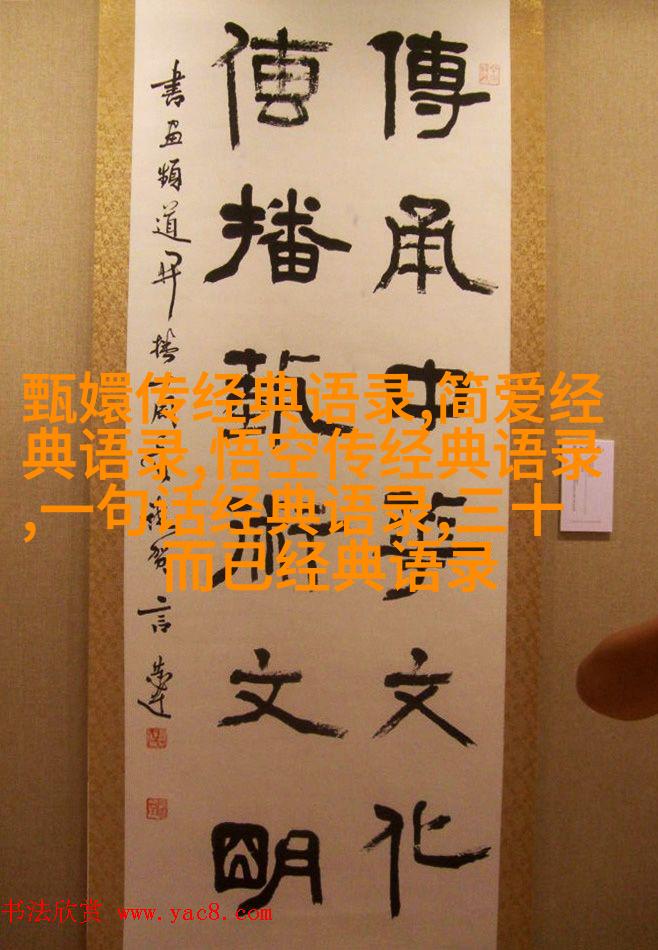 傳承中華文化
傳播蓺術文明
書画頻道开播賀言恭达
甄嬛传经典语录,简爱经
典语录,悟空传经典语录
,一句话经典语录,三十
而已经典语录
书法欣赏 www.yac8.com